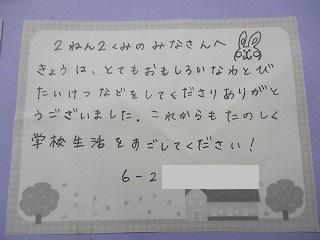 2ねん2くみのみなさんへ
きょうは、とてもおもしろいなわとび
たいけつなどをしてくださりありがと
うございました。これからもたのしく
学校生活をすごしてください!
6-2